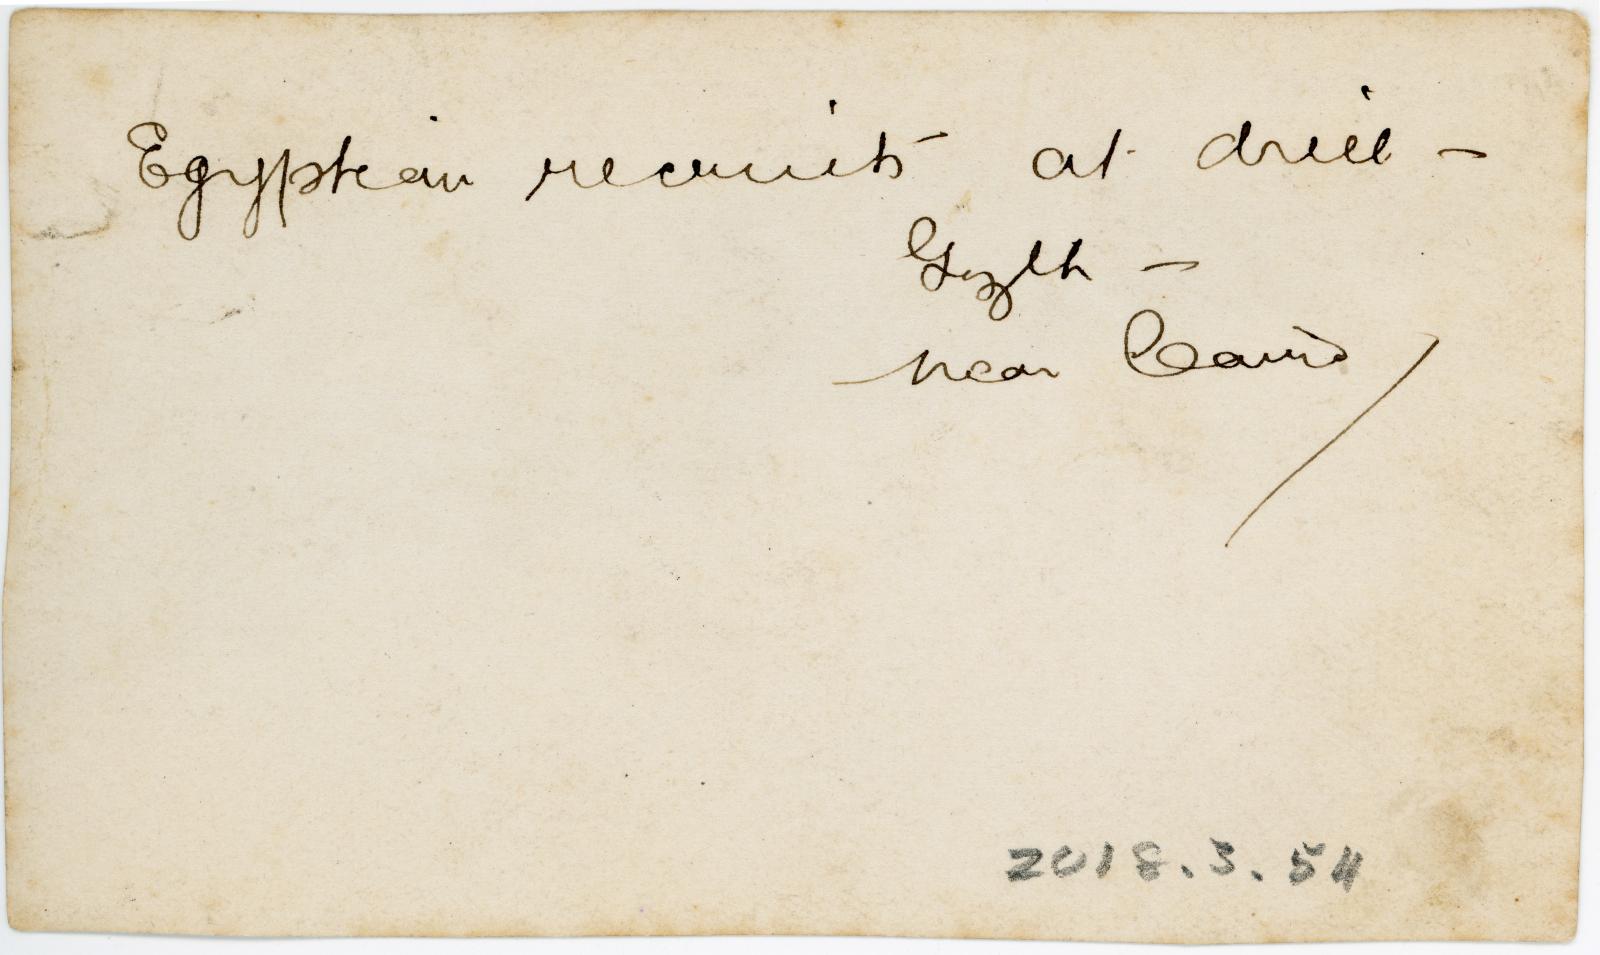 Egyptian recruits at drill –
Gizeh –
near Cairo
2018.3.54